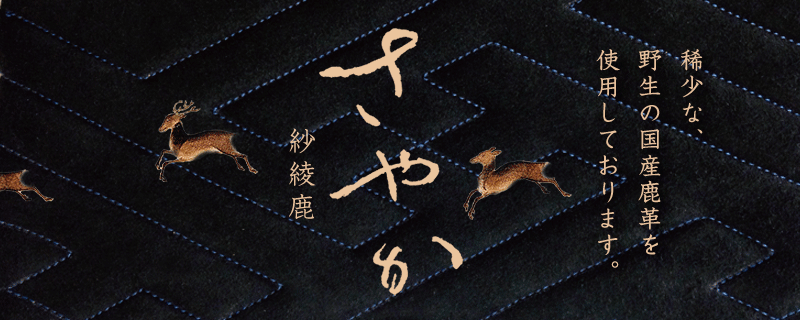 稀少な、
野生の国産鹿革を
使用しております。
さやか
紗綾鹿